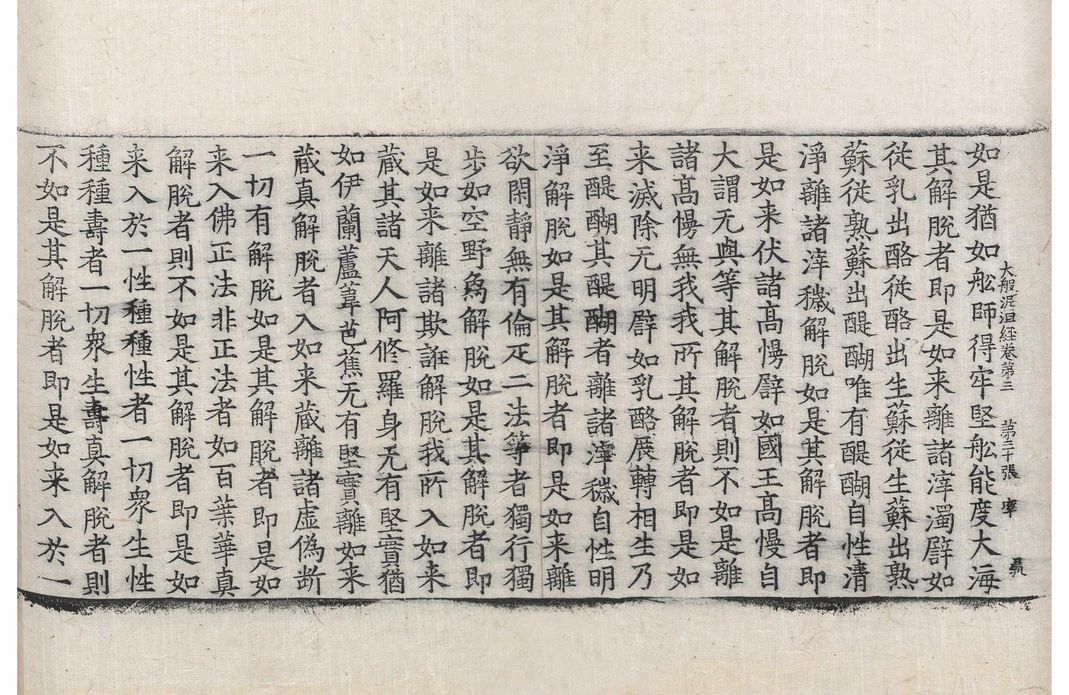 大般泥洹経卷第三 第三十張 率
如是猶如舩師得牢堅舩能度大海
其解脫者即是如来離諸滓濁譬如
從乳出酪從酪出生蘇從生蘇出熟
蘇從熟蘇出醍醐唯有醍醐自性清
淨離諸滓穢解脫如是其解脫者即
是如来伏諸髙慢譬如國王髙慢自
大謂无與等其解脫者則不如是離
諸髙慢無我我所其解脫者即是如
来滅除无明譬如乳酪展轉相生乃
至醍醐其醍醐者離諸滓穢自性明
淨解脫如是其解脫者即是如来離
欲閑静無有倫疋二法等者獨行獨
步如空野爲解脫如是其解脫者即
是如来離諸欺誑解脫我所入如来
蔵其諸天人阿修羅身无有堅實猶
如伊蘭蘆葦芭蕉无有堅實離如来
蔵真解脫者入如来蔵離諸虛偽断
一切有解脫如是其解脫者即是如
来入佛正法非正法者如百葉華真
解脫者則不如是其解脫者即是如
来入於一性種種性者一切衆生性
種種壽者一切衆生壽真解脫者則
不如是其解脫者即是如来入於一